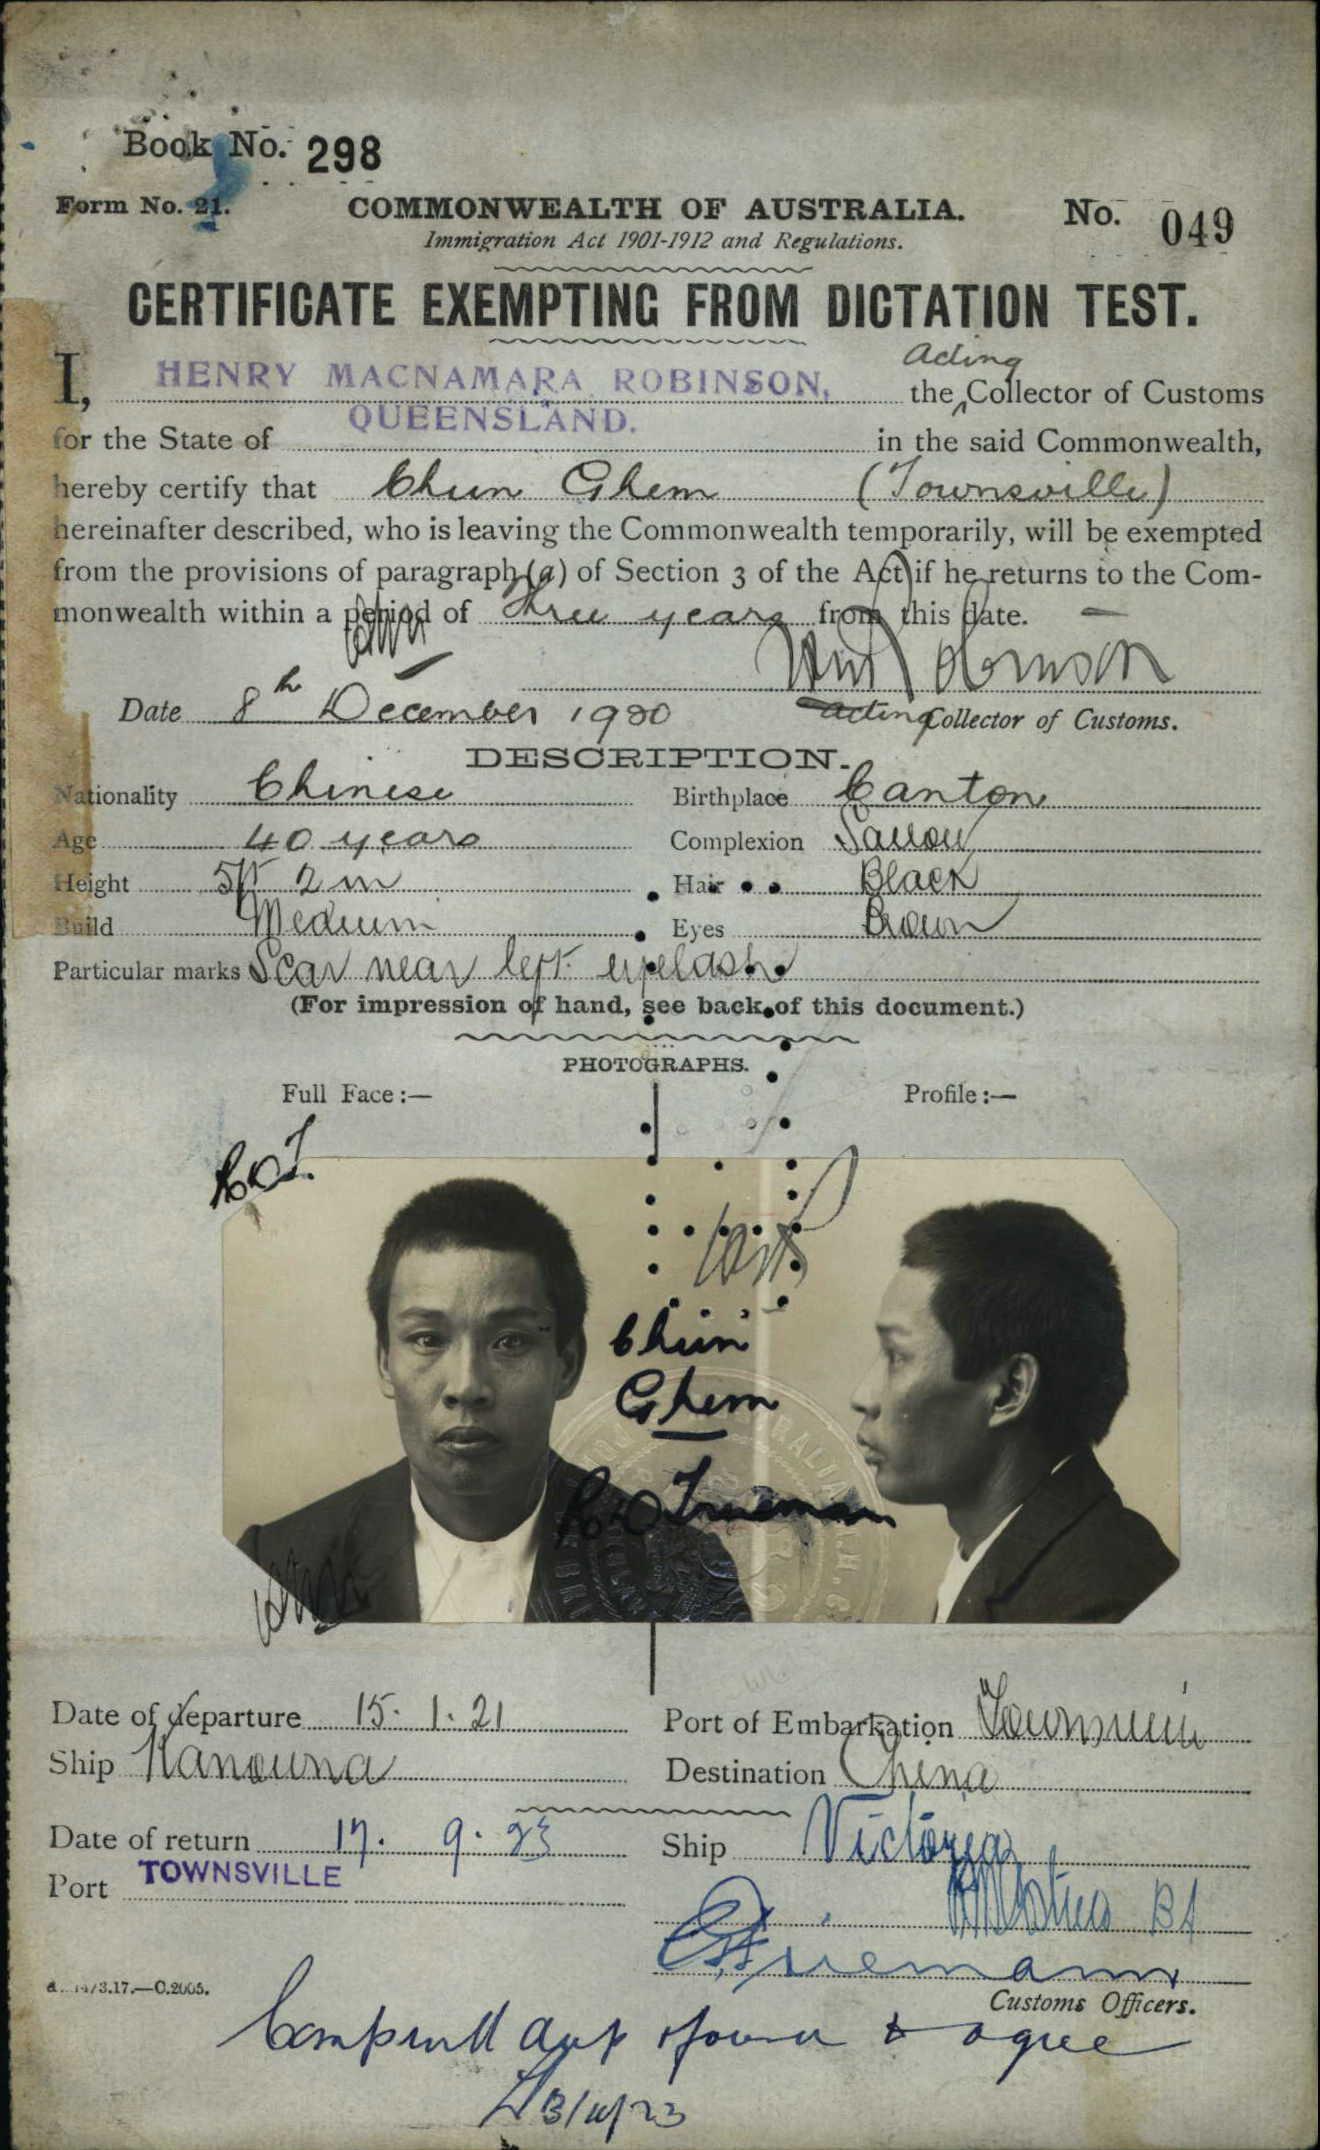 Book No. 298
Form No. 21.
COMMONWEALTH OF AUSTRALIA.
No. 049
Immigration Act 1901-1912 and Regulations.
CERTIFICATE EXEMPTING FROM DICTATION TEST.
Acting
I, HENRY MACNAMARA ROBINSON, the Collector of Customs
for the State of QUEENSLAND. in the said Commonwealth,
hereby certify that Chun Ghem (Townsville)
hereinafter described, who is leaving the Commonwealth temporarily, will be exempted
from the provisions of paragraph (a) of Section 3 of the Act if he returns to the Com-
monwealth within a period of Three years from this date.
Robinson
Date 8th December 1920 Acting Collector of Customs.
DESCRIPTION.
Nationality Chinese Birthplace Canton
Age 40 years Complexion Sallow
Height 5ft 2 in Hair Black
Build Medium Eyes Brown
Particular marks Scar near left eyelash
(For impression of hand, see back of this document.)
PHOTOGRAPHS.
Full Face:— Profile:—
Chun
Ghem
Trueman
Date of departure 15. 1. 21 Port of Embarkation Townsville
Ship Kanowna Destination China
Date of return 17. 9. 23 Ship Victoria
Port TOWNSVILLE
Customs Officers.
3.17.—C.2005.
found to agree